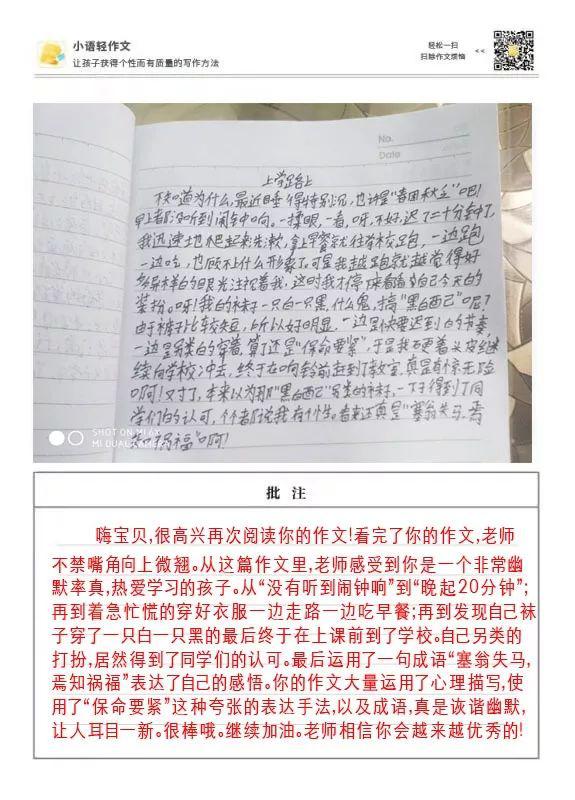 小语轻作文
让孩子获得个性而有质量的写作方法
轻松一扫
扫除作文烦恼
<<
No.
Date
上学路上
不知道为什么,最近睡得特别沉,也许是"春困秋乏"吧!
早上都没听到闹钟响。一揉眼,一看,呀,不好,迟了二十分钟了,
我迅速地爬起来洗漱,拿上早餐就往学校跑,一边跑
一边吃,也顾不上什么形象了。可是我越跑就越觉得好
多异样的眼光注视着我,这时我才停下来看看自己今天的
装扮。呀!我的袜子一只白一只黑,什么鬼,搞"黑白配"呢?
由于裤子比较短,所以好明显,一边是快要迟到的节奏,
一边是另类的穿着,算了还是"保命要紧",于是我硬着头皮继
续向学校冲去,终于在响铃前赶到了教室,真是有惊无险
啊!对了,本来以为那"黑白配"另类的袜子,一下子得到了同
学们的认可,个个都说我有个性。看来还真是"塞翁失马,焉
知祸福"啊!
SHOT ON MI 6X
MI DUAL CAMERA
批 注
嗨宝贝,很高兴再次阅读你的作文!看完了你的作文,老师
不禁嘴角向上微翘。从这篇作文里,老师感受到你是一个非常幽
默率真,热爱学习的孩子。从“没有听到闹钟响”到“晚起20分钟”;
再到着急忙慌的穿好衣服一边走路一边吃早餐;再到发现自己袜
子穿了一只白一只黑的最后终于在上课前到了学校。自己另类的
打扮,居然得到了同学们的认可。最后运用了一句成语“塞翁失马,
焉知祸福”表达了自己的感悟。你的作文大量运用了心理描写,使
用了“保命要紧”这种夸张的表达手法,以及成语,真是诙谐幽默,
让人耳目一新。很棒哦。继续加油。老师相信你会越来越优秀的!